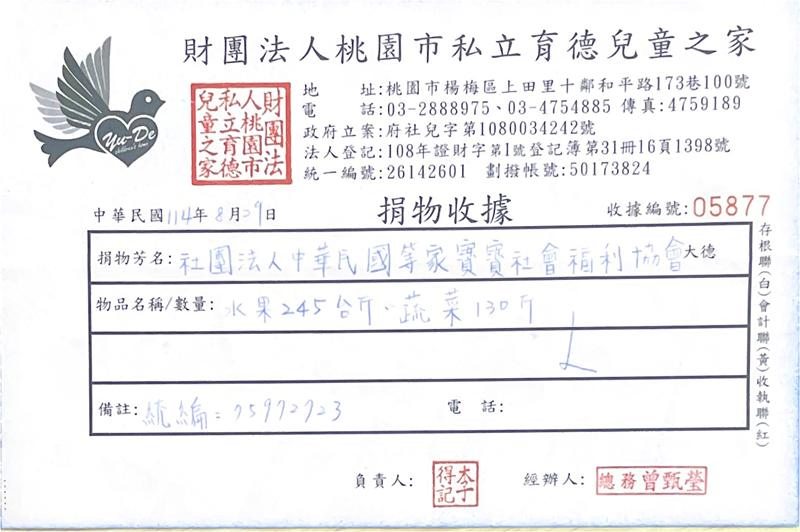 財團法人桃園市私立育德兒童之家
Yu-De
children's home
財團法人桃園市私立育德兒童之家
地 址:桃園市楊梅區上田里十鄰和平路173巷100號
電 話:03-2888975、03-4754885 傳真:4759189
政府立案:府社兒字第1080034242號
法人登記:108年證財字第1號登記簿第31冊16頁1398號
統一編號:26142601 劃撥帳號:50173824
中華民國114年8月29日
捐物收據
收據編號:05877
捐物芳名:社團法人中華民國等家寶寶社會福利協會大德
物品名稱/數量:水果245台斤、蔬菜130斤
備註:統編:75972723 電 話:
存根聯(白)會計聯(黃)收執聯(紅)
負責人:
經辦人:總務曾甄瑩